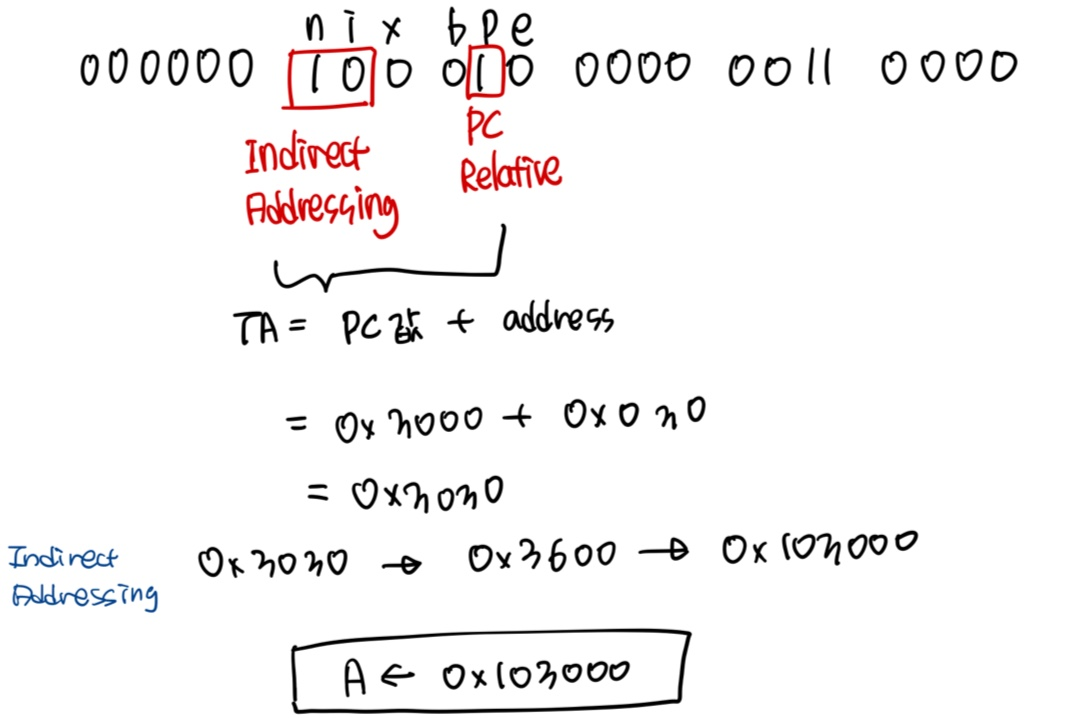 n i x b p e
000000 100 010 0000 0011 0000
Indirect
Addressing
PC
Relative
TA = PC값 + address
= 0x3000 + 0x030
= 0x3030
Indirect
Addressing
0x3030 → 0x3600 → 0x103000
A ← 0x103000